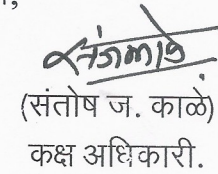 (संतोष ज. काळे)
कक्ष अधिकारी.